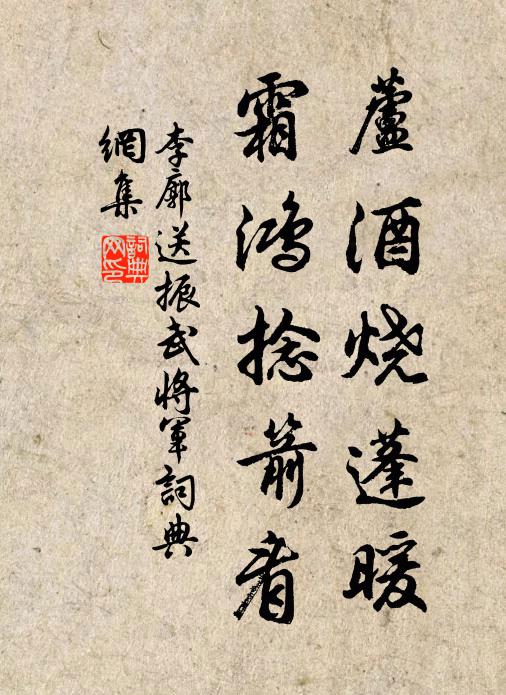 蘆酒烧蓬暖
霜鸿捻箭看
李廓送振武將軍詞典
網集
詞典
网印